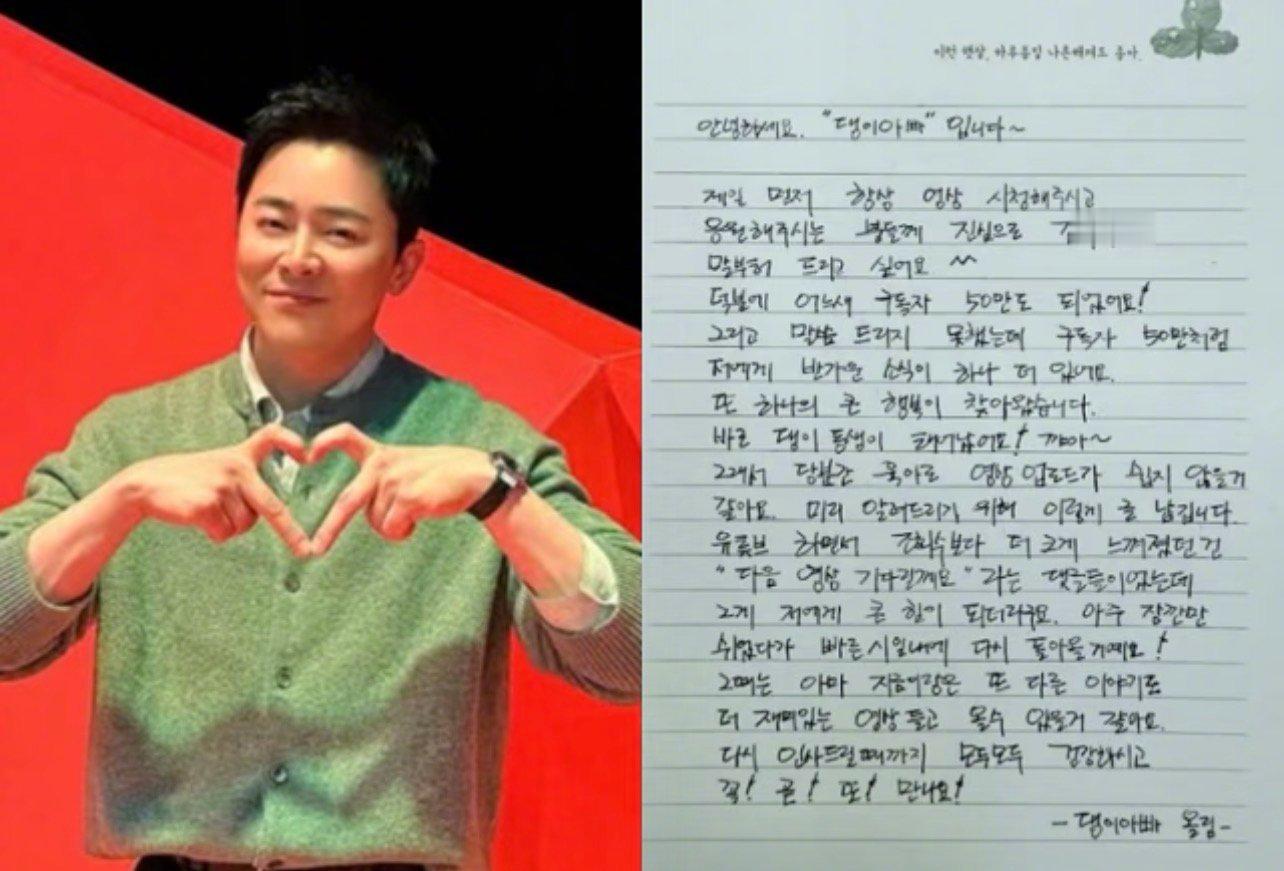 이런 햇살, 하루종일 나른해져도 좋아.
안녕하세요. "댕이아빠" 입니다~
제일 먼저 항상 영상 시청해주시고
응원해주시는 분들께 진심으로
말부터 드리고 싶어요 ^^
덕분에 어느새 구독자 50만도 되었어요!
그리고 말씀 드리지 못했는데 구독자 50만처럼
저에게 반가운 소식이 하나 더 있어요.
또 하나의 큰 행복이 찾아왔습니다.
바로 댕이 동생이 태어났어요! 꺄아~
그래서 당분간 육아로 영상 업로드가 쉽지 않을거
같아요. 미리 알려드리기 위해 이렇게 글 남깁니다.
유튜브 하면서 조회수보다 더 크게 느껴졌던 건
"다음 영상 기다릴께요" 라는 댓글들이었는데
그게 저에게 큰 힘이 되더라구요. 아주 잠깐만
쉬었다가 빠른시일내에 다시 돌아올거예요!
그때는 아마 지금이랑은 또 다른 이야기로
더 재미있는 영상 들고 올수 있을거 같아요.
다시 인사드릴때까지 모두모두 건강하시고
꼭! 곧! 또! 만나요!
- 댕이아빠 올림-